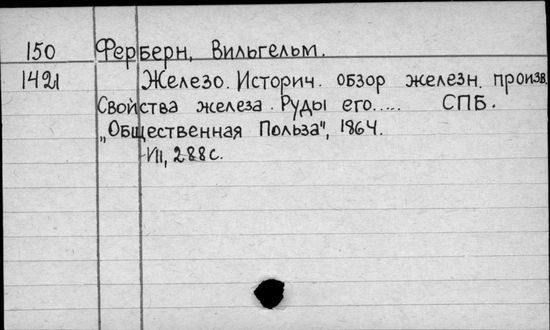 150 Ферберн, Вильгельм.
1421 Железо. Историч. обзор железн. произв.
Свойства железа. Руды его..... СПБ.
„Общественная Польза", 1864.
VII, 288с.